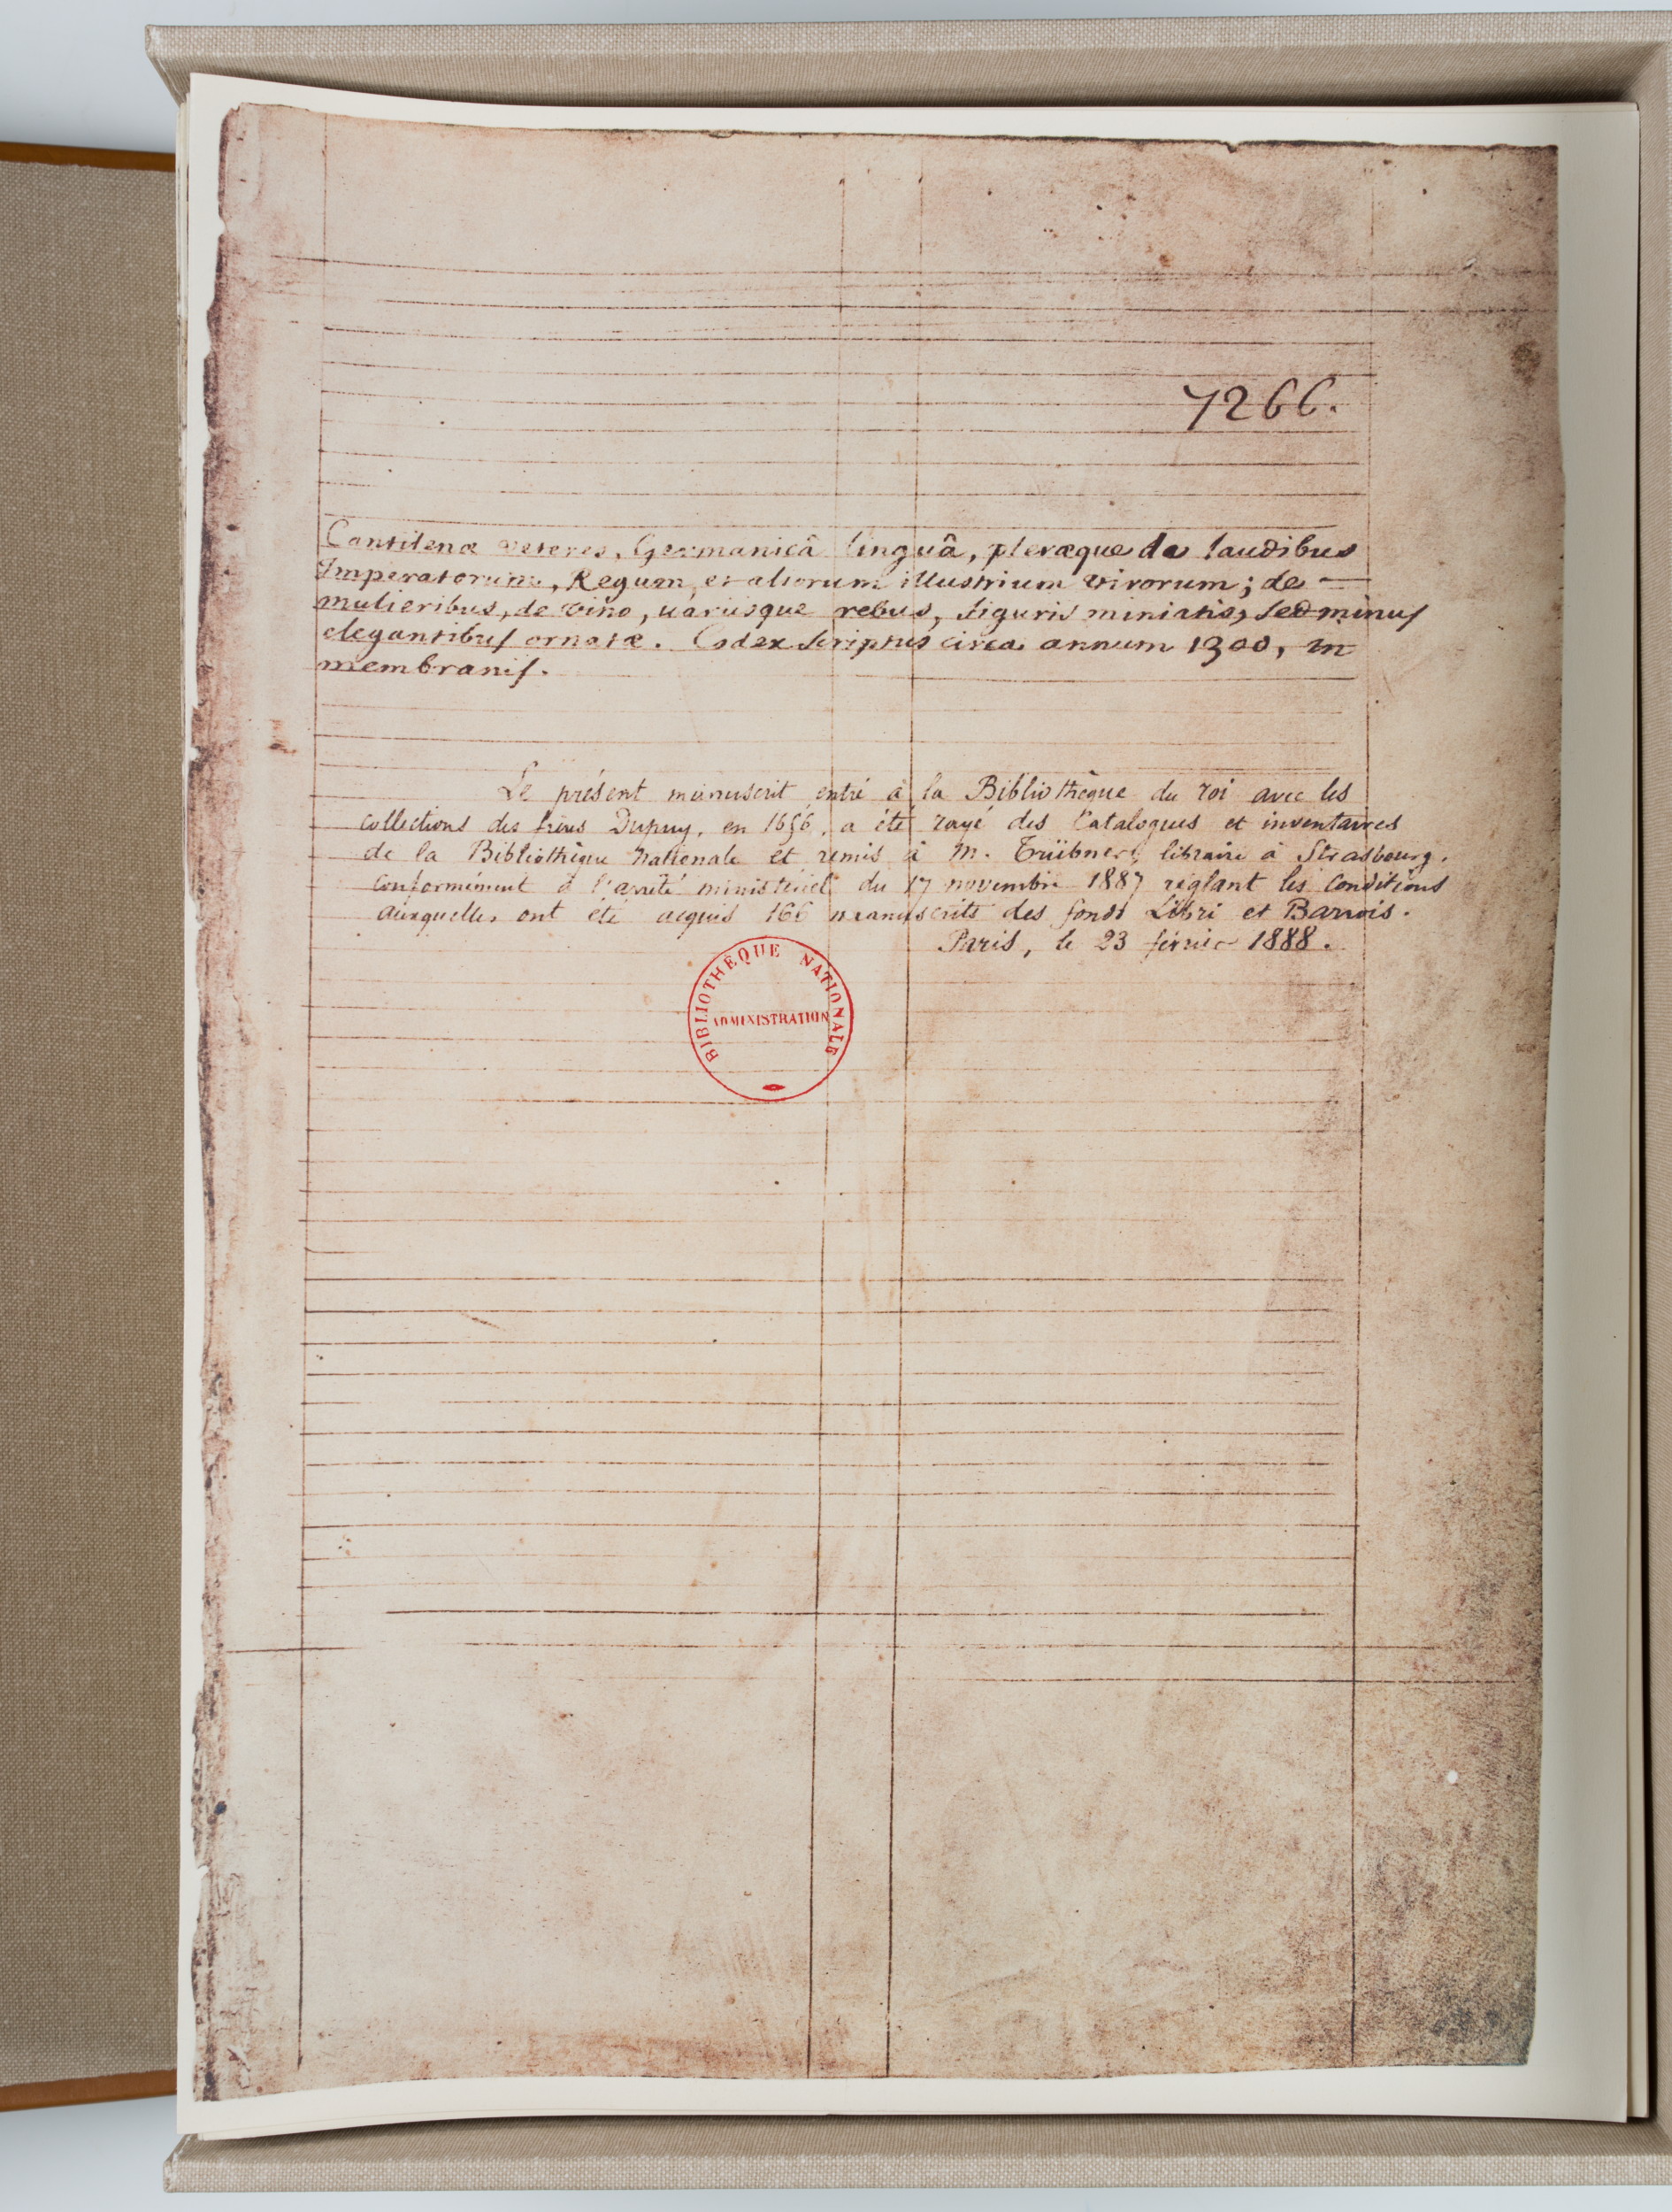 7266.
Cantilenæ veteres, Germanicâ linguâ, pleræque de laudibus
Imperatorum, Regum, et aliorum illustrium virorum; de
mulieribus, de vino, uariisque rebus, figuris miniatis, sed minus
elegantibus ornatæ. Codex scriptus circa annum 1300, in
membranis.
Le présent manuscrit, entré à la Bibliothèque du roi avec les
collections des frères Dupuy, en 1656, a été rayé des Catalogues et inventaires
de la Bibliothèque Nationale et remis à M. Trübner, libraire à Strasbourg,
conformément à l'arrêté ministériel du 17 novembre 1887 réglant les conditions
auxquelles ont été acquis 166 manuscrits des fonds Libri et Barrois.
Paris, le 23 février 1888.
BIBLIOTHÈQUE NATIONALE
ADMINISTRATION